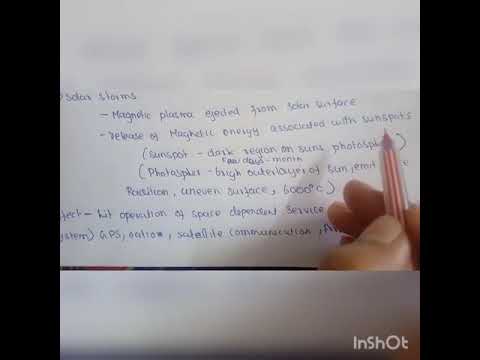 solar storms
- Magnetic plasma ejected from solar surface
- Release of Magnetic energy associated with sunspots
(sunspot - dark region on suns photosphe
few days - month
( Photospher - brigh outerlayer of sun, emit
Radition, uneven surface, 6000°C)
ect - hit operation of space dependent service
ystem) GPS, satellite communication,
InShOt